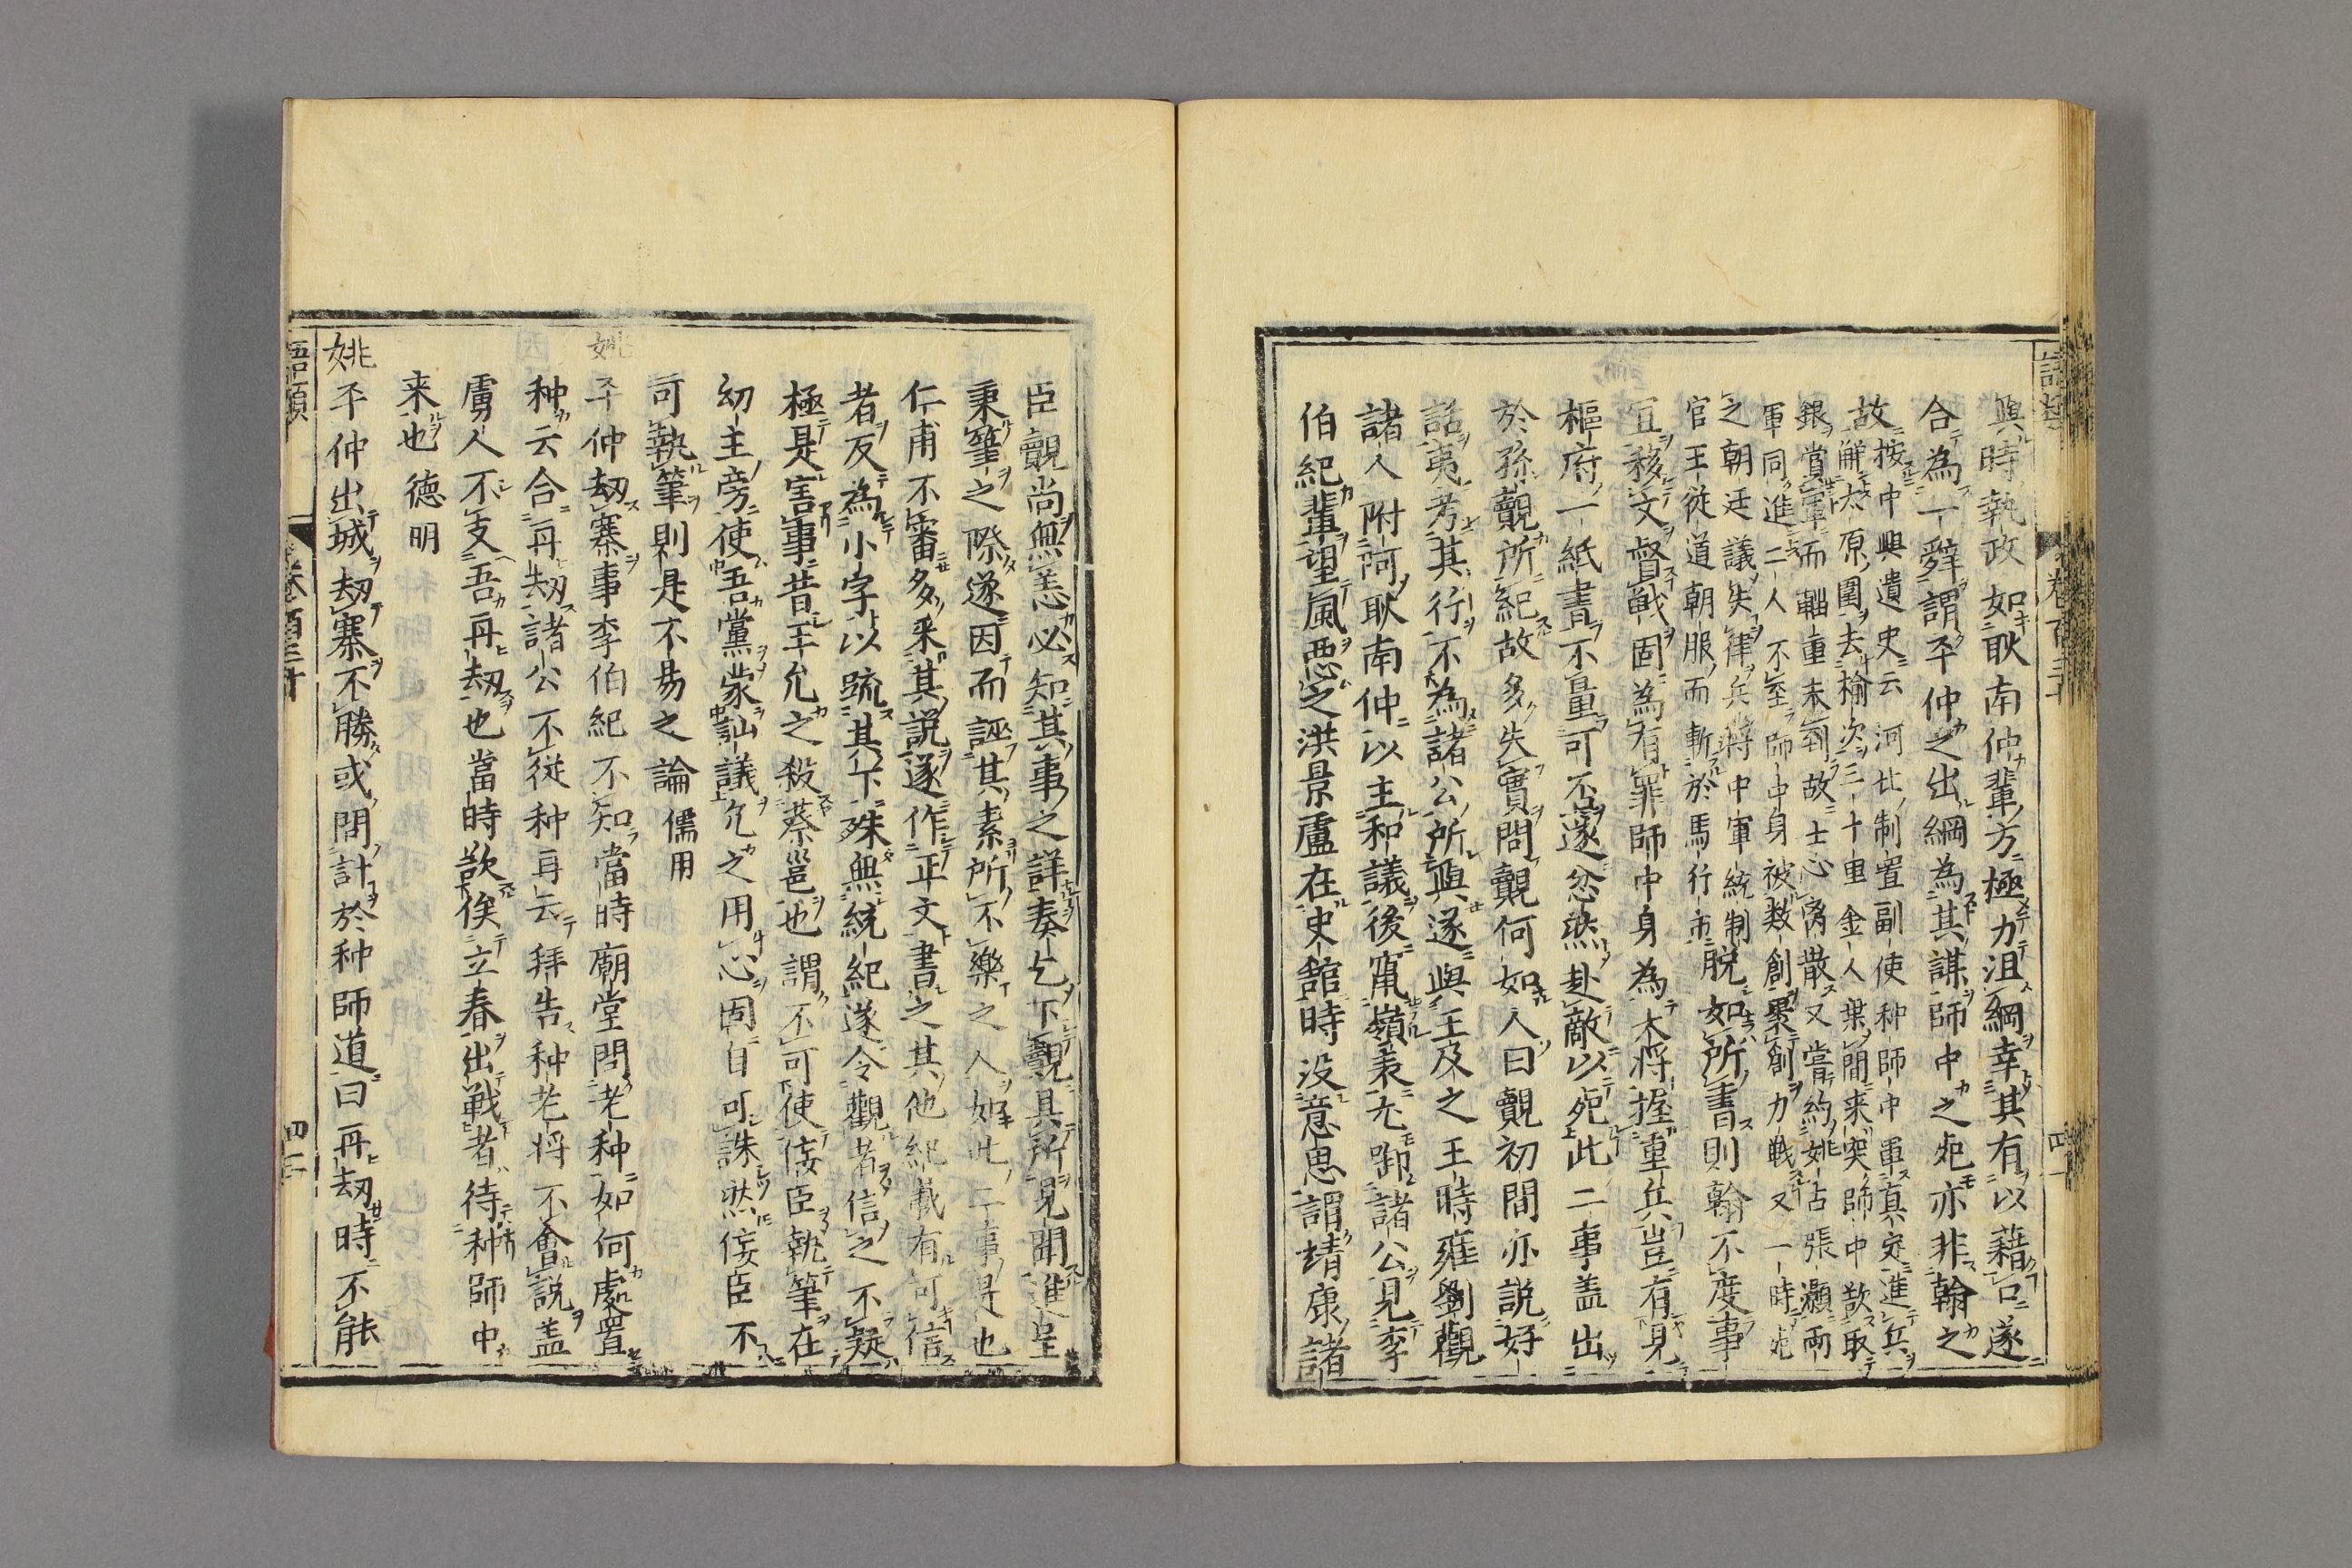 與時執政如耿南仲輩方極力沮綱幸其有以藉口遂
合為一辭謂平仲之出綱為其謀師中之死亦非翰之
故按中興遺史云河北制置副使种師中軍真定進兵
解太原圍去榆次三十里金人葉間来突師中欲取
銀賞軍而輜重未到故士心离散又嘗約姚古張灝兩
軍同進二人不至師中身被数創裹創力戦又一時死
之朝廷議失律兵將中軍統制
官王従道朝服而斬於馬行市脱如所書則翰不度事
宜移文督戦固為有罪師中身為大将握重兵豈有見
樞府一紙書不量可否遂忿然赴敵以死此二事盖出
於孫覿所紀故多失實問覿何如人曰覿初間亦説好
話夷考其行不為諸公所與遂與王及之王時雍劉觀
諸人附阿耿南仲以主和議後竄嶺表尤啣諸公見李
伯紀輩望風悪之洪景盧在史舘時没意思謂靖康諸
臣覿尚無恙必知其事之詳奏乞下覿具所見聞進呈
秉筆之際遂因而誣其素所不樂之人如此二事是也
仁甫不審多采其説遂作正文書之其他紀載有可信
者反為小字以疏其下殊無統紀遂令觀者信之不疑
極是害事昔王允之殺蔡邕也謂不可使佞臣執筆在
幼主旁使吾黨蒙訕議允之用心固自可誅然佞臣不
可執筆則是不易之論 儒用
姚平仲刼寨事李伯紀不知當時廟堂問老种如何處置
种云合再刼諸公不従种再云拜告种老将不會説盖
虜人不支吾再刼也當時欲俟立春出戦者待种師中
来也 德明
姚平仲出城刼寨不勝或問計於种師道曰再刼時不能
語類
卷百三十
四二